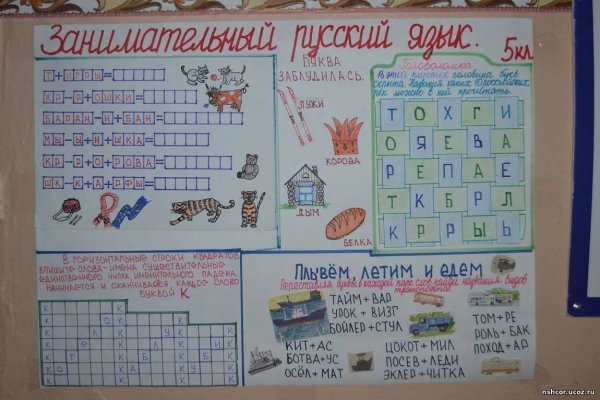 Занимательный русский язык. 5кл.
Т+ИГРЫ=
КР-Р+ОШКИ=
БАРАН-Н+БАН=
МЫ-Ы+ШКА=
КР-Р+О+РОВА=
ШК-К+АРФЫ=
БУКВА
ЗАБЛУДИЛАСЬ.
ЛУЖИ
КОРОВА
ДЫМ
БЕЛКА
Головоломка.
В этой плетёнке половина букв
скрыта. Названия каких 10 российских
рек можно в ней прочитать.
Т О Х Г И
О Я Е В А
Р Е П А Е
Т К Б Р Л
К Р Р Ы Ь
В ГОРИЗОНТАЛЬНЫЕ СТРОКИ КВАДРАТОВ
ВПИШИТЕ СЛОВА-ИМЕНА СУЩЕСТВИТЕЛЬНЫЕ
ЕДИНСТВЕННОГО ЧИСЛА, ИМЕНИТЕЛЬНОГО ПАДЕЖА,
НАЧИНАЕТСЯ И СКАНЧИВАЕТСЯ КАЖДОЕ СЛОВО
БУКВОЙ К
Плывём, летим и едем
Переставляя буквы в каждой паре слов найди названия видов
транспортов.
ТАЙМ+ВАР
УРОК+ВИЗГ
БОЙЛЕР+СТУЛ
КИТ+АС
БОТВА+УС
ОСЁЛ+МАТ
ЦОКОТ+МИЛ
ПОСЕВ+ЛЕДИ
ЭКЛЕР+ЧИТКА
ТОМ+РЕ
РОЛЬ+БАК
ПОХОД+АР
nshcor.ucoz.ru